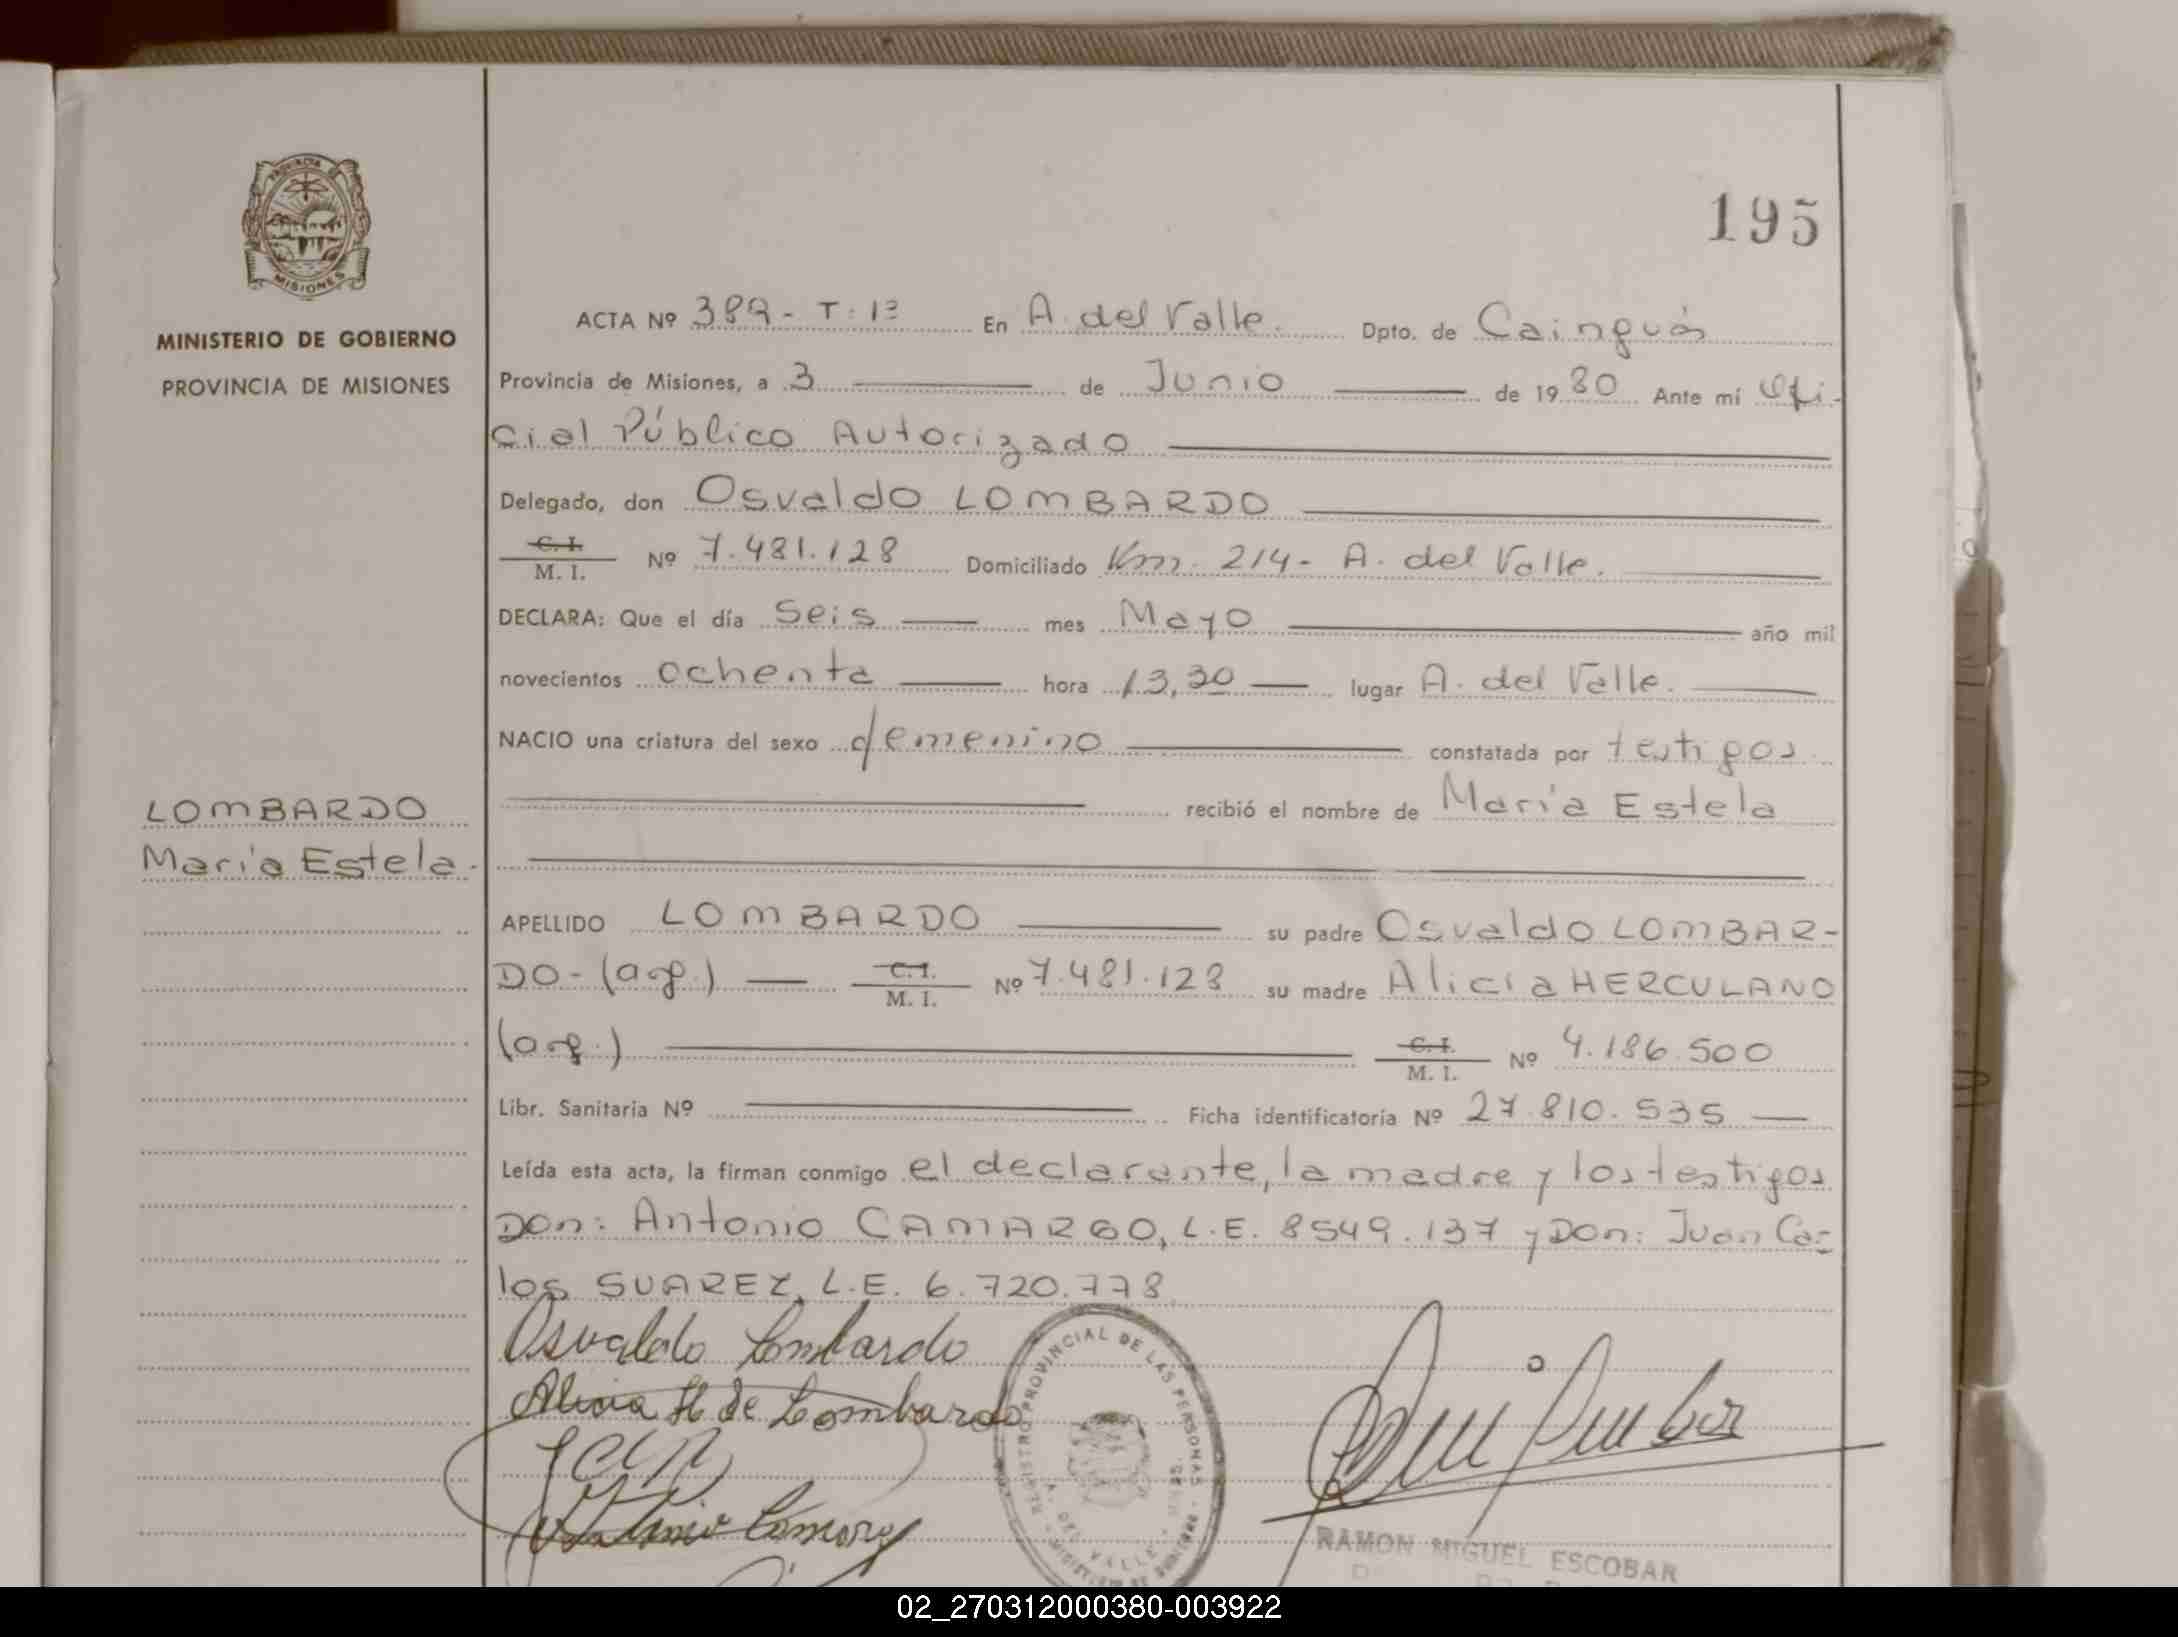 195
PROVINCIA
MISIONES
MINISTERIO DE GOBIERNO
PROVINCIA DE MISIONES
ACTA Nº 389 - T: 1º En A. del Valle. Dpto. de Cainguás
Provincia de Misiones, a 3 de Junio de 1980 Ante mí Ofi-
cial Público Autorizado
Delegado, don Osvaldo LOMBARDO
C. I.
M. I. Nº 7.481.128 Domiciliado Km. 214 - A. del Valle.
DECLARA: Que el día Seis mes Mayo año mil
novecientos ochenta hora 13,30 lugar A. del Valle.
NACIO una criatura del sexo femenino constatada por testigos
recibió el nombre de María Estela
LOMBARDO
María Estela.
APELLIDO LOMBARDO su padre Osvaldo LOMBAR-
DO - (arg.) C. I.
M. I. Nº 7.481.128 su madre Alicia HERCULANO
(arg.) C. I.
M. I. Nº 4.186.500
Libr. Sanitaria Nº Ficha identificatoria Nº 27.810.535
Leída esta acta, la firman conmigo el declarante, la madre y los testigos
Don: Antonio CAMARGO, L.E. 8549.137 y Don: Juan Car-
los SUAREZ, L.E. 6.720.778
Osvaldo Lombardo
Alicia H de Lombardo
REGISTRO PROVINCIAL DE LAS PERSONAS
A. DEL VALLE
RAMON MIGUEL ESCOBAR
02_270312000380-003922